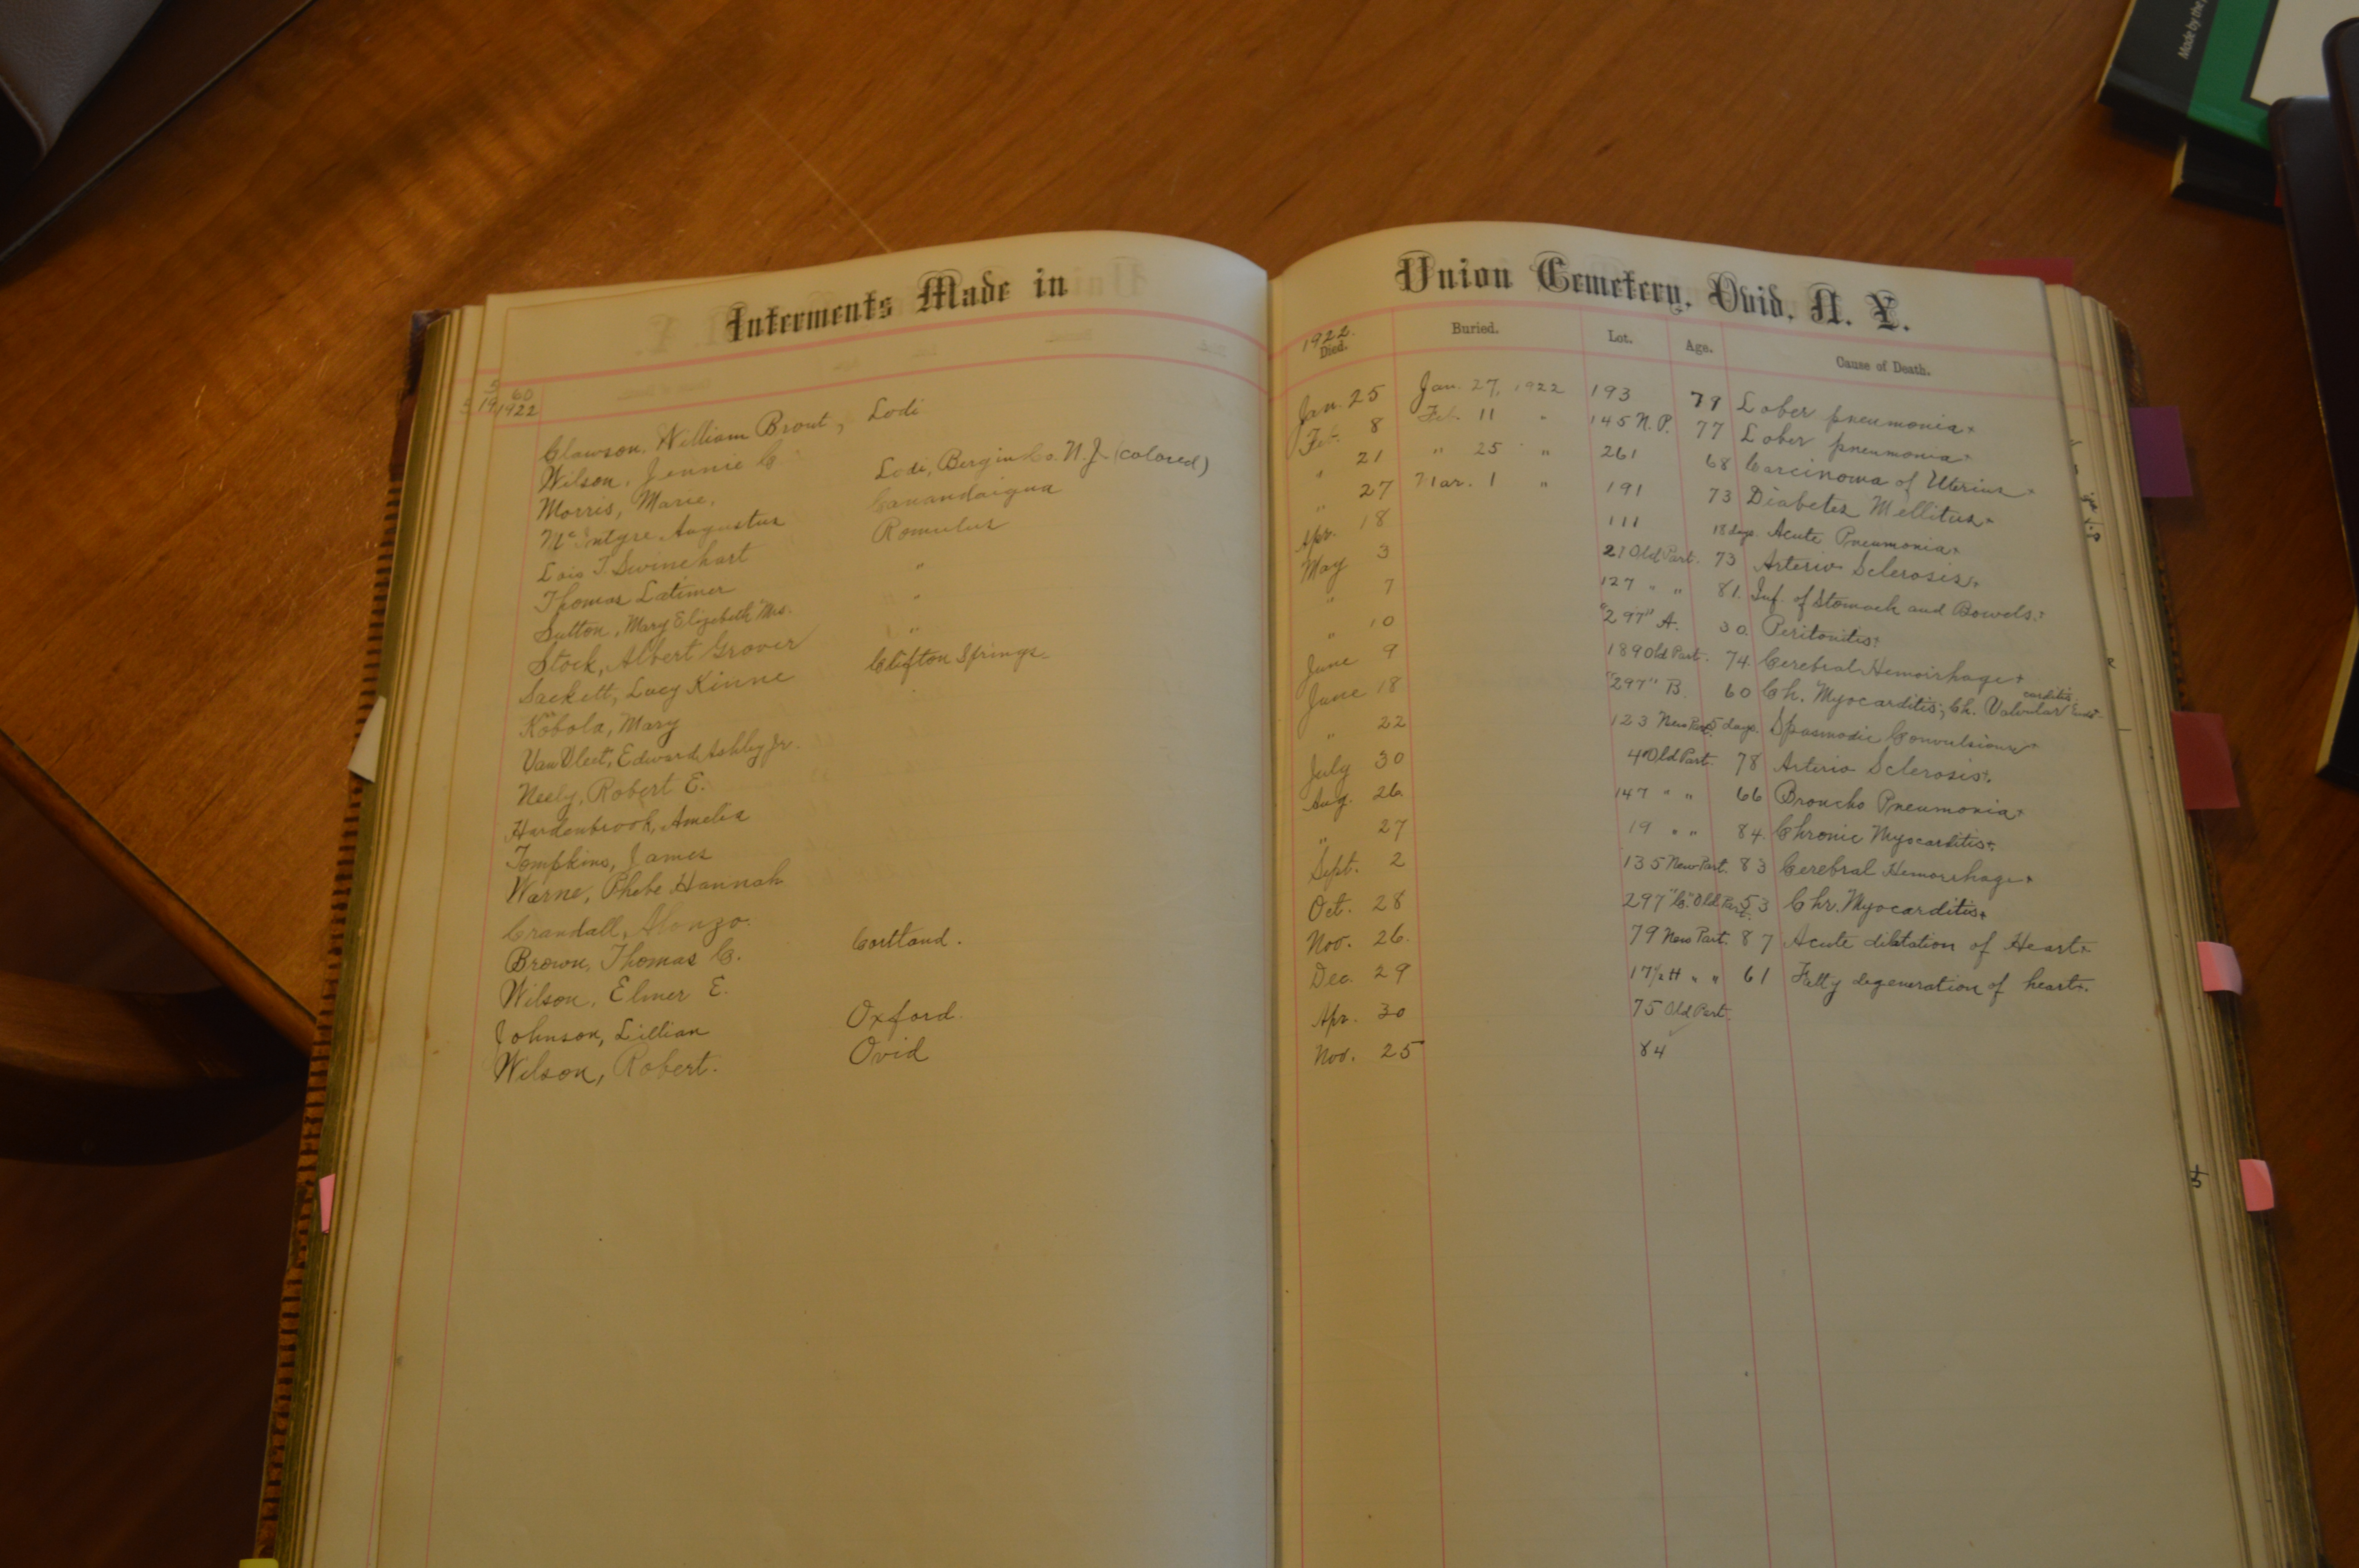 Made by the
Interments Made in
5 60
5 19 1922
Clawson, William Brout, Lodi
Wilson, Jennie C.
Morris, Marie. Lodi, Bergin Co. N.J. (colored)
McIntyre, Augustus Canandaigua
Lois T. Swinehart Romulus
Thomas Latimer "
Sutton, Mary Elizabeth "Mrs. "
Stock, Albert Grover "
Sackett, Lucy Kinne Clifton Springs.
Kobola, Mary
VanVleet, Edward Ashley Jr.
Neely, Robert E.
Hardenbrook, Amelia
Tompkins, James
Warne, Phebe Hannah
Crandall, Alonzo.
Brown, Thomas C. Cortland.
Wilson, Elmer E.
Johnson, Lillian Oxford.
Wilson, Robert. Ovid
Union Cemetery, Ovid, N. Y.
1922.
Died. Buried. Lot. Age. Cause of Death.
Jan. 25 Jan. 27, 1922 193 79 Lober pneumonia
Feb. 8 Feb. 11 " 145 N.P. 77 Lober pneumonia
" 21 " 25 " 261 68 Carcinowa of Uterius
" 27 Mar. 1 " 191 73 Diabetes Mellitus
Apr. 18 111 18 days. Acute Pneumonia
May 3 21 Old Part. 73 Arterio Sclerosis
" 7 127 " " 81. Inf. of Stomach and Bowels.
" 10 "297" A. 30. Peritonitis
June 9 189 Old Part. 74. Cerebral Hemorrhage
June 18 "297" B. 60 Ch. Myocarditis; Ch. Valvular Endocarditis
" 22 123 New Part. 5 days. Spasmodic Convulsions
July 30 4 Old Part. 78 Arterio Sclerosis.
Aug. 26 147 " " 66 Broncho Pneumonia
" 27 19 " " 84. Chronic Myocarditis.
Sept. 2 135 New Part. 83 Cerebral Hemorrhage
Oct. 28 297 "C." Old Part. 53 Chr. Myocarditis
Nov. 26. 79 New Part. 87 Acute diletation of Heart
Dec. 29 17½ H " " 61 Fatty degeneration of heart.
Apr. 30 75 Old Part.
Nov. 25 84